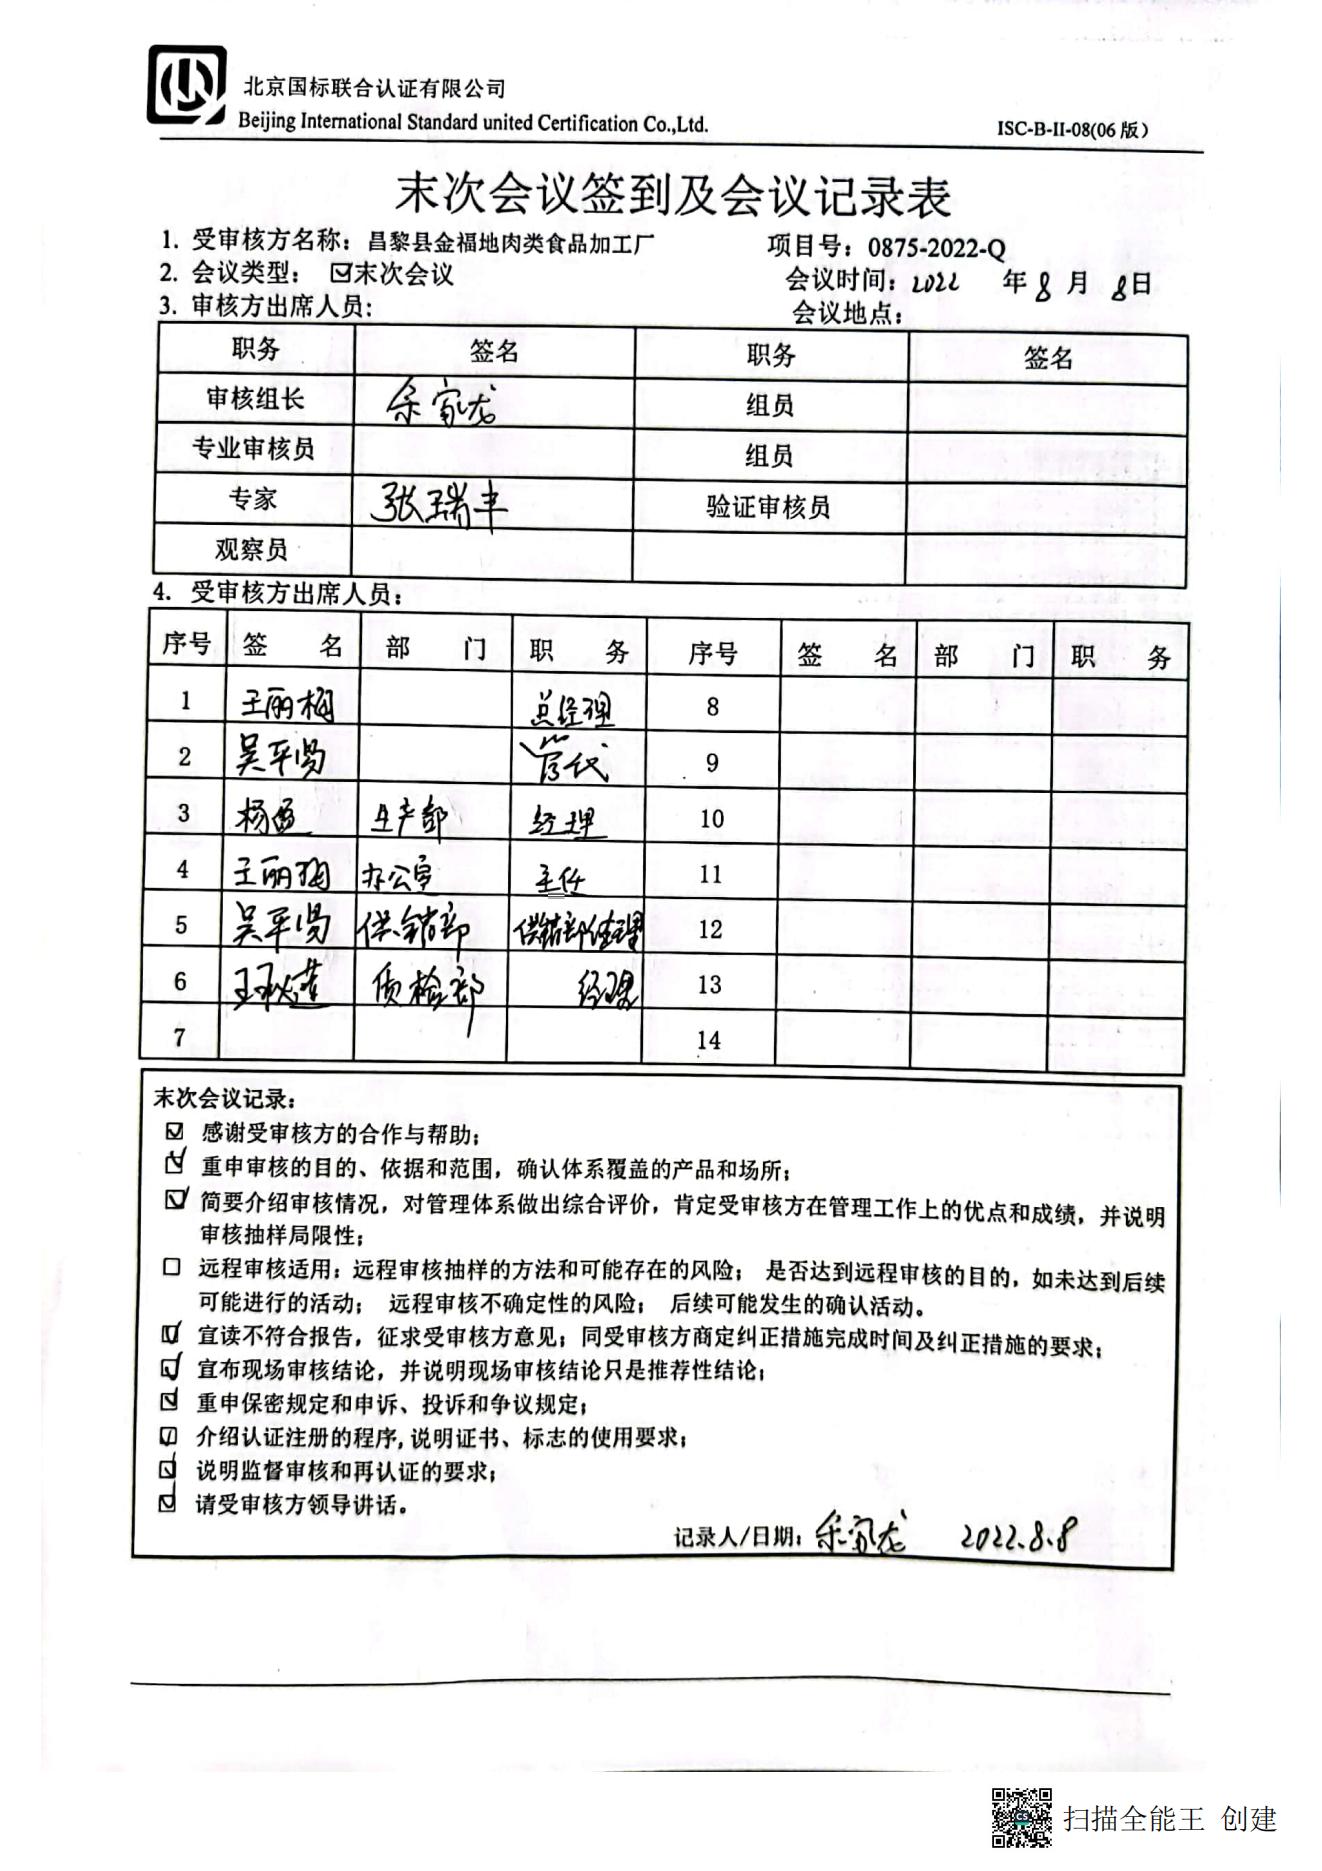 北京国标联合认证有限公司
Beijing International Standard united Certification Co.,Ltd.
ISC-B-II-08(06版)
末次会议签到及会议记录表
1. 受审核方名称：昌黎县金福地肉类食品加工厂 项目号：0875-2022-Q
2. 会议类型： ☑末次会议 会议时间：2022 年 8 月 8日
3. 审核方出席人员： 会议地点：
职务 签名 职务 签名
审核组长 余家龙 组员
专业审核员 组员
专家 张瑞丰 验证审核员
观察员
4. 受审核方出席人员：
序号 签 名 部 门 职 务 序号 签 名 部 门 职 务
1 王丽梅 总经理 8
2 吴平 管代 9
3 杨 生产部 经理 10
4 王丽梅 办公室 主任 11
5 吴平 供销部 供销部经理 12
6 王 质检部 经理 13
7 14
末次会议记录：
☑ 感谢受审核方的合作与帮助；
☑ 重申审核的目的、依据和范围，确认体系覆盖的产品和场所；
☑ 简要介绍审核情况，对管理体系做出综合评价，肯定受审核方在管理工作上的优点和成绩，并说明
审核抽样局限性；
□ 远程审核适用：远程审核抽样的方法和可能存在的风险； 是否达到远程审核的目的，如未达到后续
可能进行的活动； 远程审核不确定性的风险； 后续可能发生的确认活动。
☑ 宣读不符合报告，征求受审核方意见；同受审核方商定纠正措施完成时间及纠正措施的要求；
☑ 宣布现场审核结论，并说明现场审核结论只是推荐性结论；
☑ 重申保密规定和申诉、投诉和争议规定；
☑ 介绍认证注册的程序,说明证书、标志的使用要求；
☑ 说明监督审核和再认证的要求；
☑ 请受审核方领导讲话。
记录人/日期：余家龙 2022.8.8
扫描全能王 创建